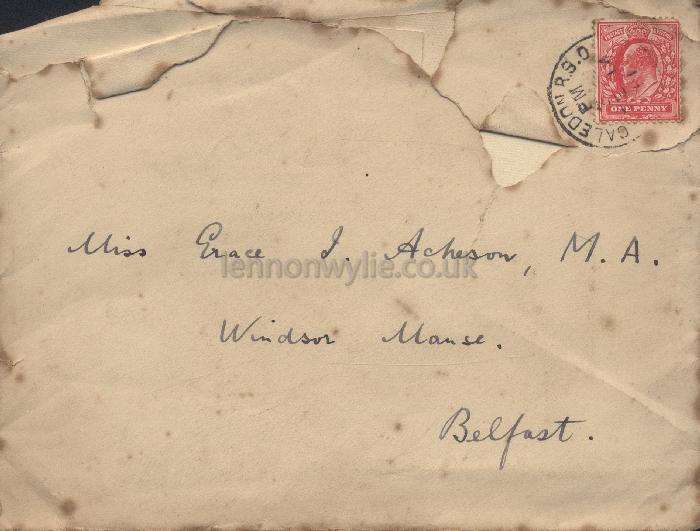 CALEDON R.S.O.
PM
ONE PENNY
Miss Grace I. Acheson, M.A.
lennonwylie.co.uk
Windsor Manse.
Belfast.